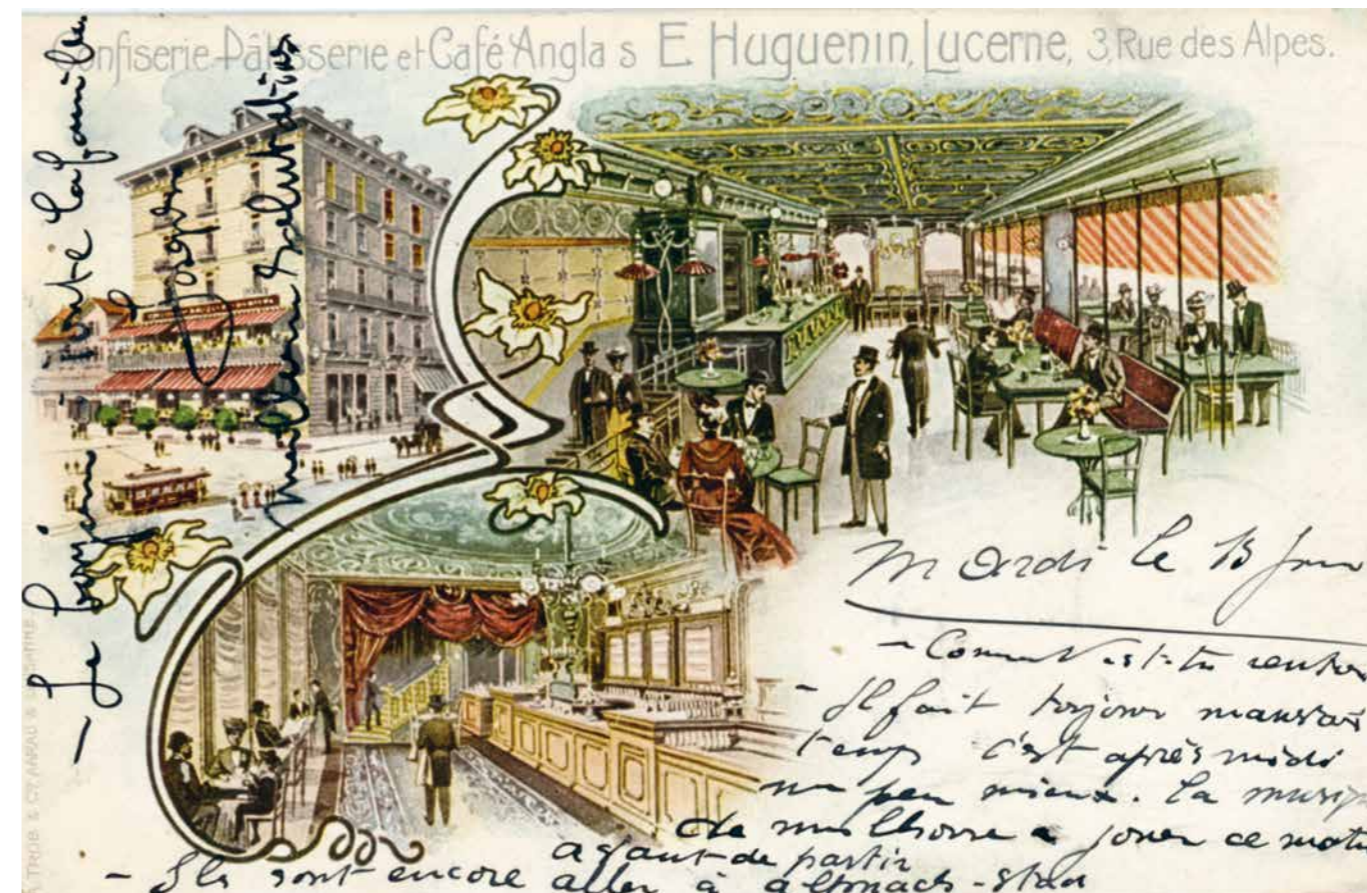 Confiserie-Pâtisserie et Café Anglais E. Huguenin, Lucerne, 3, Rue des Alpes.
Mardi le 13 Juin
- Comment es-tu rentré
- Il fait toujours mauvais
temps c'est après midi
un peu mieux. La musique
de Mulhouse a jouer ce matin
avant de partir
- Ils sont encore aller à Alpnach-Stad
toute la famille
Joseph
meilleures Salutations
A. TRÜB & CIE AARAU & LAUSANNE